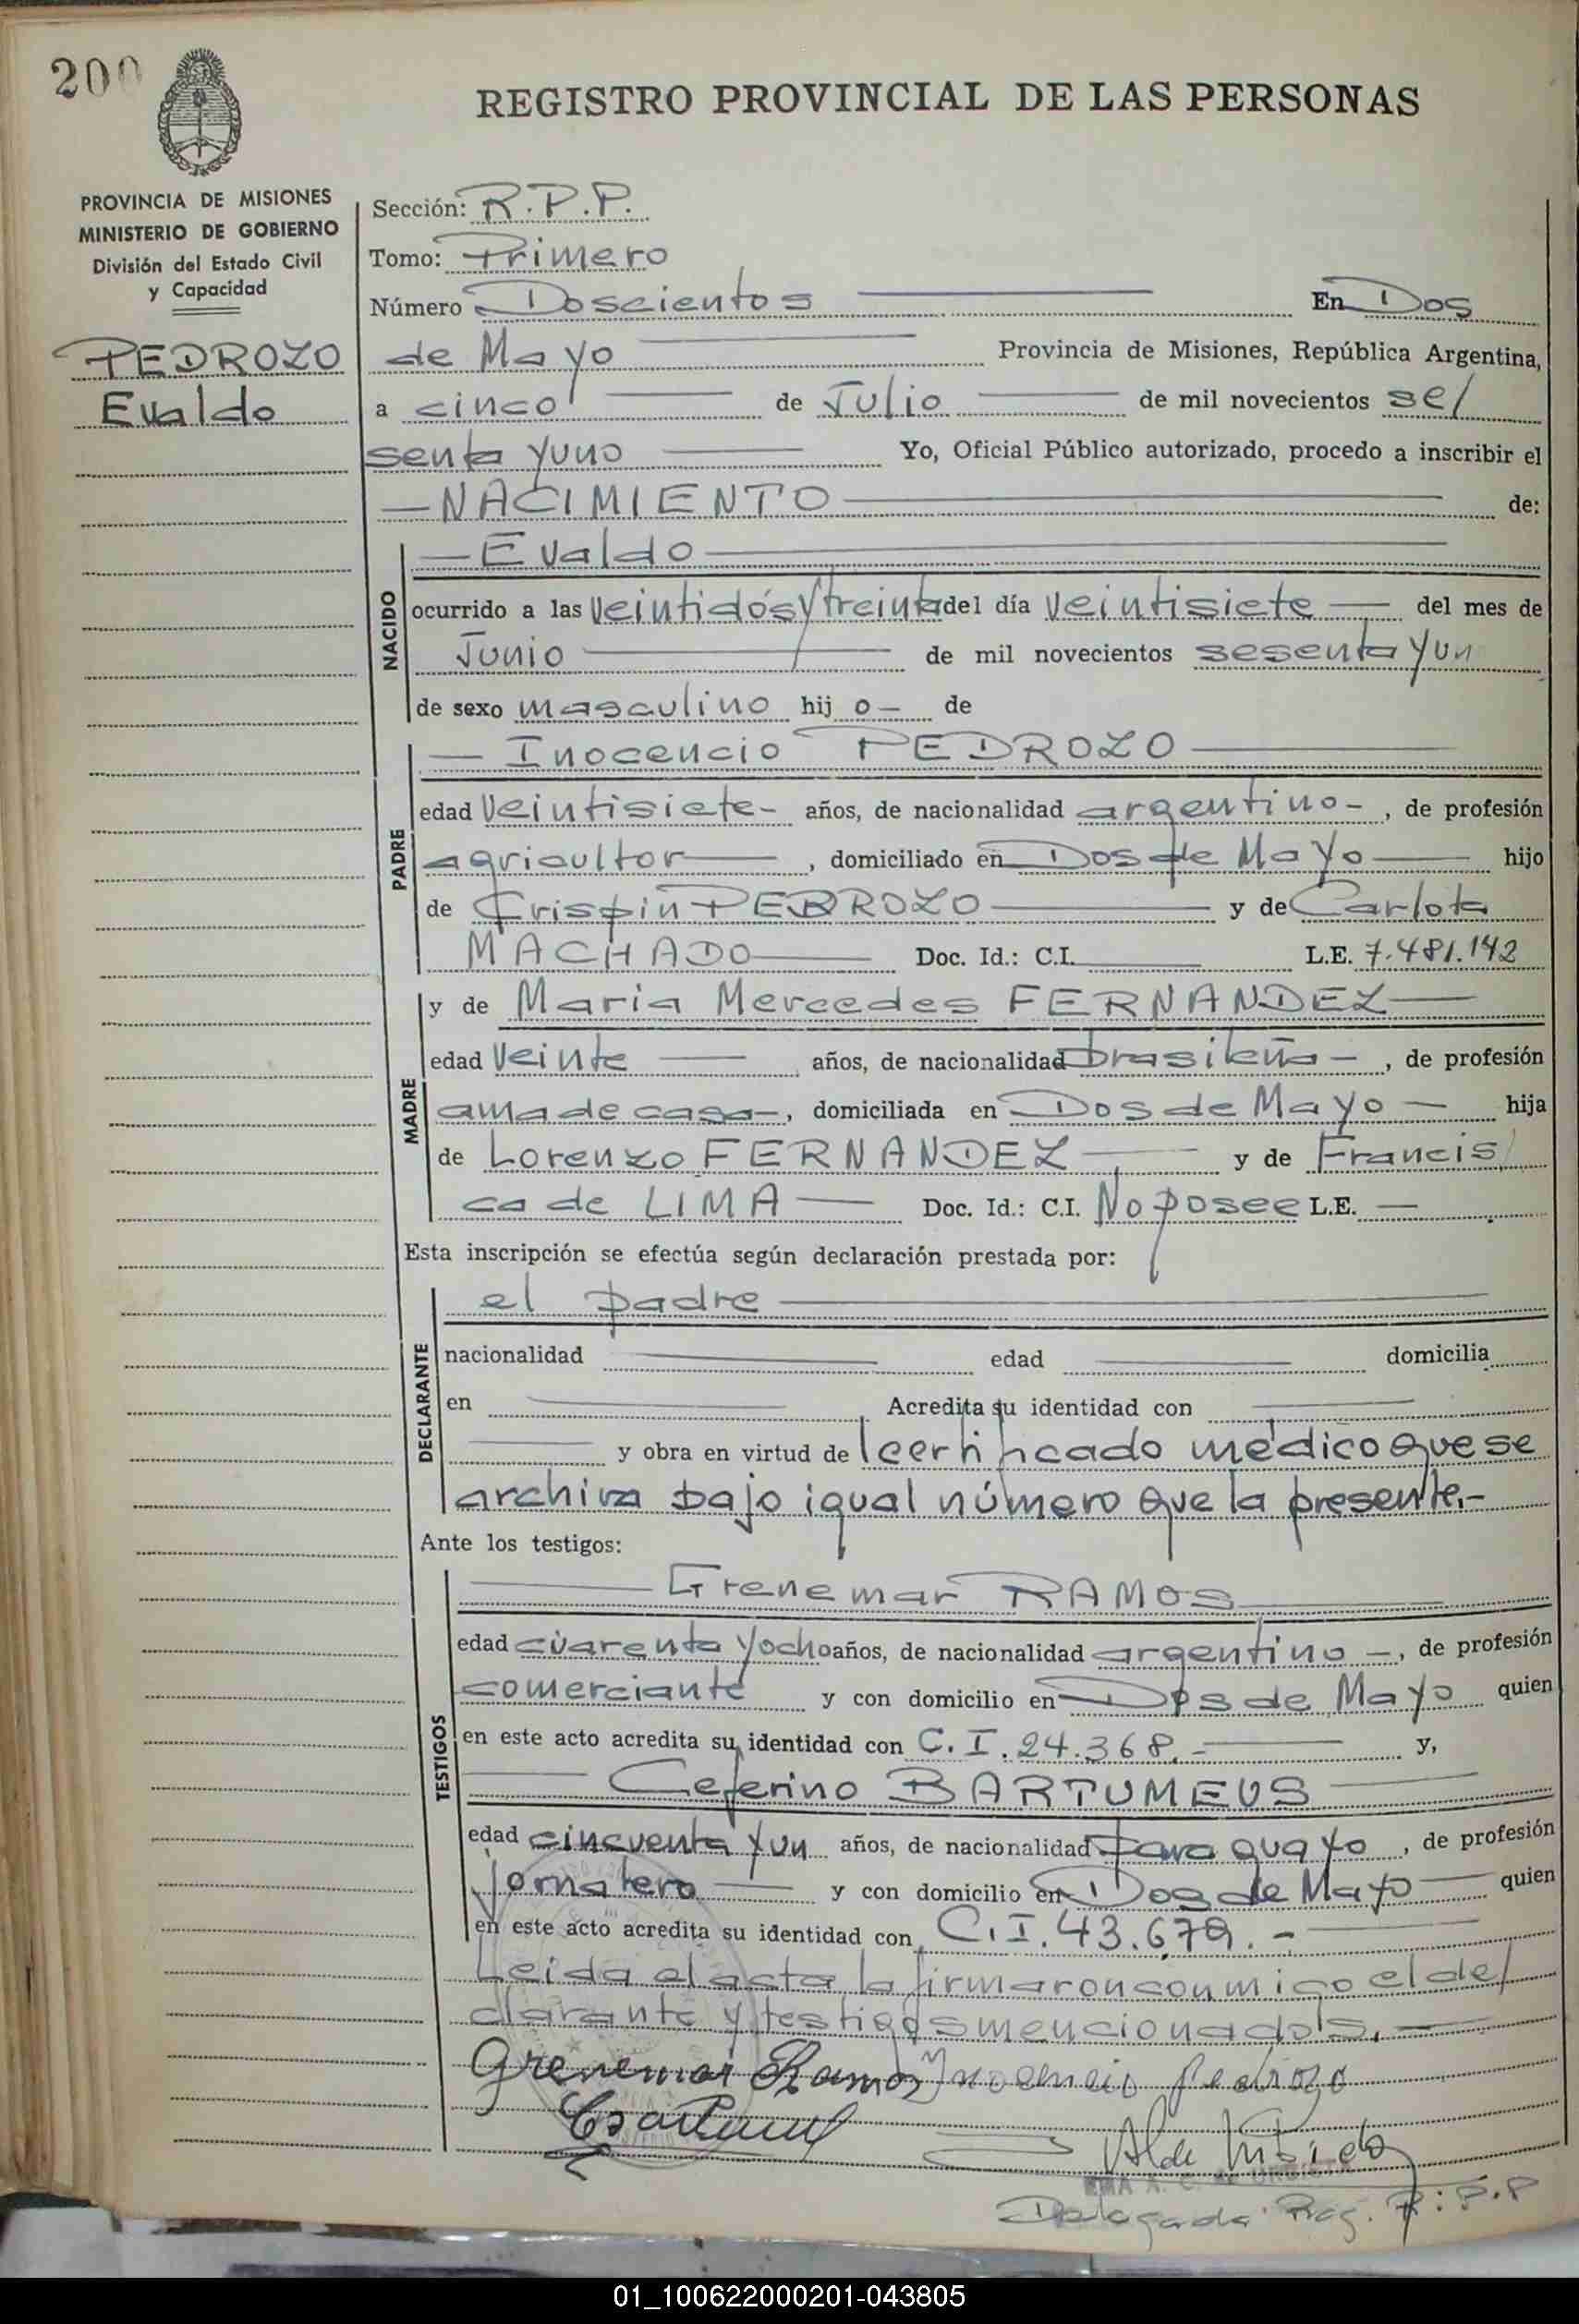 200
REGISTRO PROVINCIAL DE LAS PERSONAS
PROVINCIA DE MISIONES
MINISTERIO DE GOBIERNO
División del Estado Civil
y Capacidad
PEDROZO
Evaldo
Sección: R.P.P.
Tomo: Primero
Número Doscientos En Dos
de Mayo Provincia de Misiones, República Argentina,
a cinco de Julio de mil novecientos se/
senta y uno Yo, Oficial Público autorizado, procedo a inscribir el
NACIMIENTO de:
NACIDO
Evaldo
ocurrido a las veintidós y treinta del día veintisiete del mes de
Junio de mil novecientos sesenta y un
de sexo masculino hij o- de
PADRE
Inocencio PEDROZO
edad veintisiete- años, de nacionalidad argentino-, de profesión
agricultor, domiciliado en Dos de Mayo hijo
de Crispin PEDROZO y de Carlota
MACHADO Doc. Id.: C.I. L.E. 7.481.142
MADRE
y de Maria Mercedes FERNANDEZ
edad veinte años, de nacionalidad brasileña-, de profesión
ama de casa-, domiciliada en Dos de Mayo hija
de Lorenzo FERNANDEZ y de Francis/
ca de LIMA Doc. Id.: C.I. No posee L.E. —
Esta inscripción se efectúa según declaración prestada por:
DECLARANTE
el padre
nacionalidad edad domicilia
en Acredita su identidad con
y obra en virtud de certificado médico que se
archiva bajo igual número que la presente.-
Ante los testigos:
TESTIGOS
Grenemar RAMOS
edad cuarenta y ocho años, de nacionalidad argentino-, de profesión
comerciante y con domicilio en Dos de Mayo quien
en este acto acredita su identidad con C.I. 24.368.- y,
Ceferino BARTUMEUS
edad cincuenta y un años, de nacionalidad paraguayo, de profesión
jornalero y con domicilio en Dos de Mayo quien
en este acto acredita su identidad con C.I. 43.679.-
Leida el acta la firmaron conmigo el de/
clarante y testigos mencionados.-
Grenemar Ramos Inocencio Pedrozo
Delegada Reg. P.P.P
01_100622000201-043805